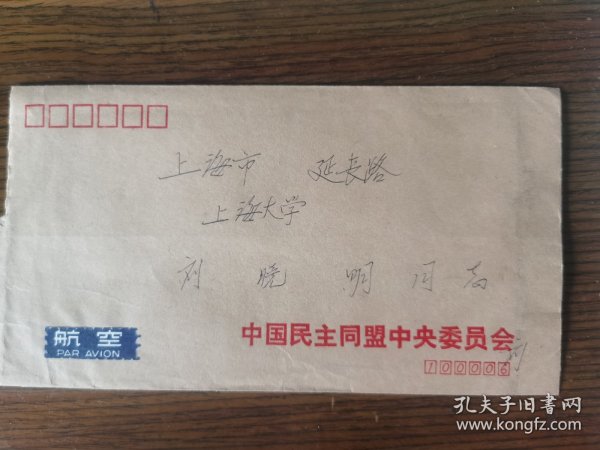 上海市 延长路
上海大学
刘 晓 明 同志
航空
PAR AVION
中国民主同盟中央委员会
100006
孔夫子旧书网
www.kongfz.com